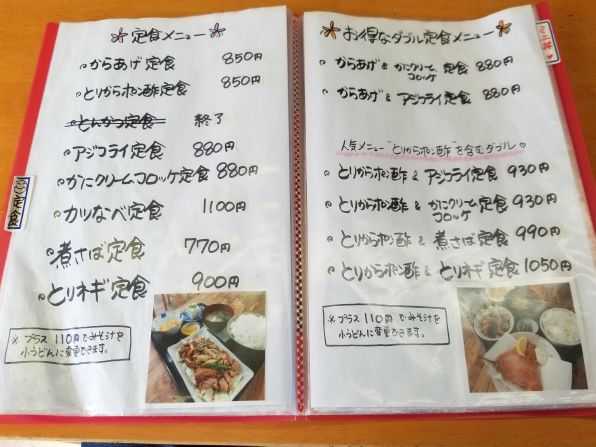 定食メニュー
からあげ定食 850円
とりからポン酢定食 850円
とんかつ定食 終了
アジフライ定食 880円
かにクリームコロッケ定食 880円
カツなべ定食 1100円
煮さば定食 770円
とりネギ定食 900円
※プラス110円でみそ汁を
小うどんに変更できます。
お得なダブル定食メニュー
からあげ & かにクリームコロッケ 定食 880円
からあげ & アジフライ定食 880円
人気メニュー"とりからポン酢"を含むダブル
とりからポン酢 & アジフライ定食 930円
とりからポン酢 & かにクリームコロッケ 定食 930円
とりからポン酢 & 煮さば定食 990円
とりからポン酢 & とりネギ定食 1050円
※プラス110円でみそ汁を
小うどんに変更できます。